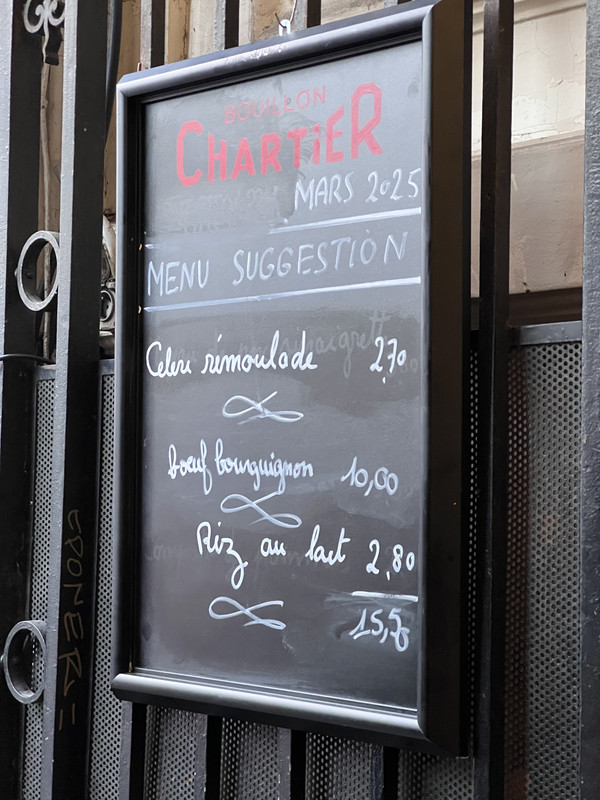 BOUILLON
CHARTIER
MARS 2025
MENU SUGGESTION
Celeri rémoulade 2,70
boeuf bourguignon 10,00
Riz au lait 2,80
15,50